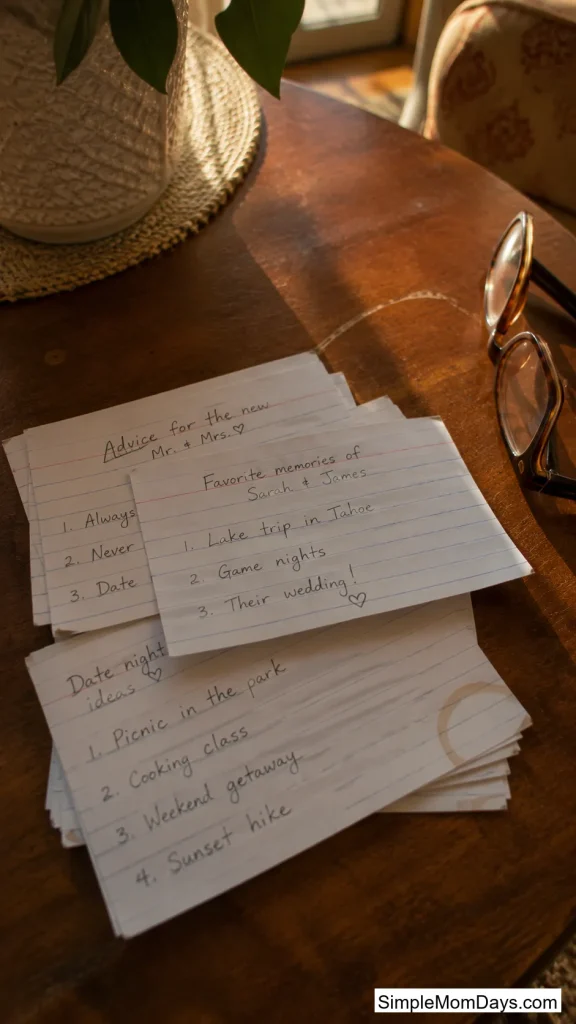 Advice for the new
Mr. & Mrs. ♡
1. Always
2. Never
3. Date
Favorite memories of
Sarah & James
1. Lake trip in Tahoe
2. Game nights
3. Their wedding!
♡
Date night
ideas ♡
1. Picnic in the park
2. Cooking class
3. Weekend getaway
4. Sunset hike
SimpleMomDays.com